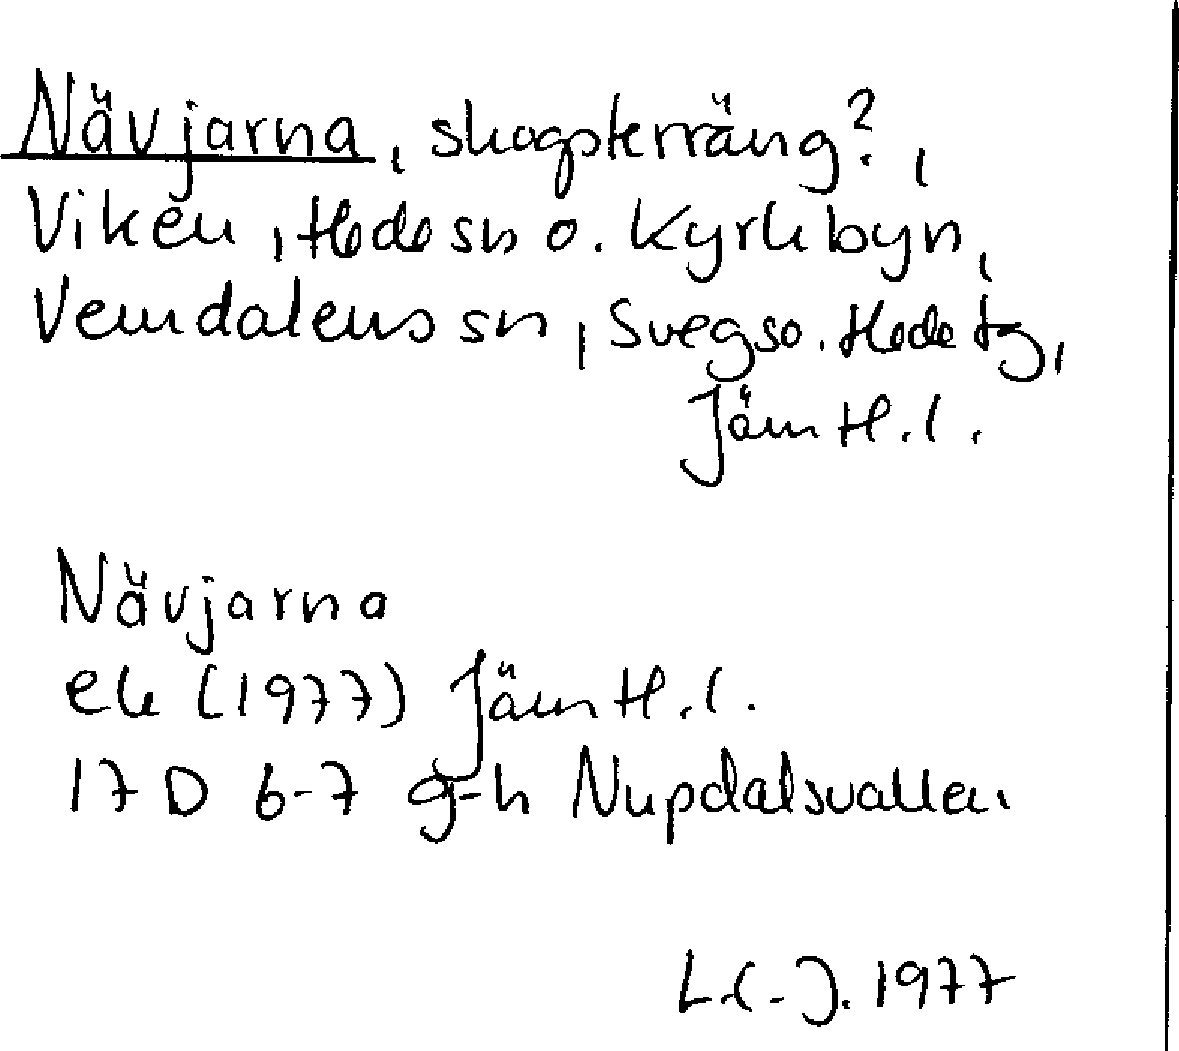 Nävjarna, skogsterräng?,
Viken, Hede sn o. Kyrkbyn,
Vemdalens sn, Svegs o. Hede tg,
Jämtl. l.
Nävjarna
ek (1977) Jämtl. l.
17 D 6-7 g-h Nupdalsvallen
L.(-J. 1977